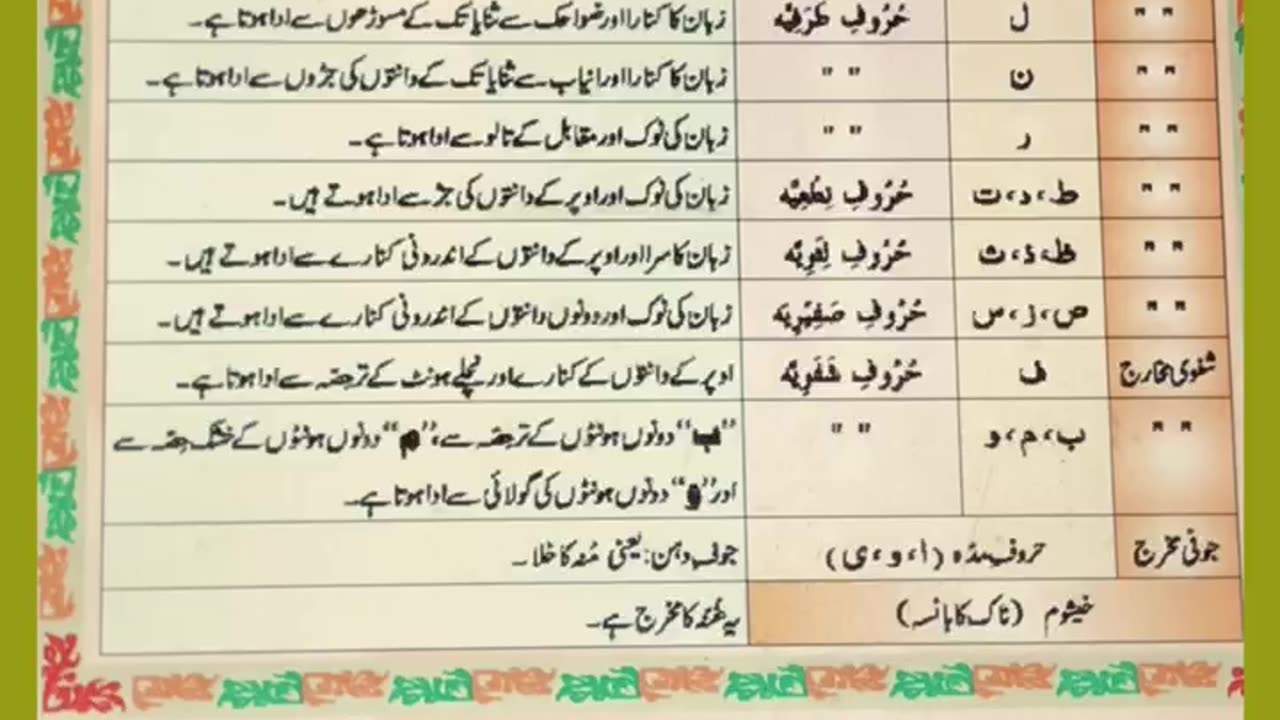 " " ل حُرُوفِ طَرَفِیَّہ زبان کا کنارا اور ضواحک سے ثنایا تک کے مسوڑھوں سے ادا ہوتا ہے۔
" " ن " " زبان کا کنارا اور انیاب سے ثنایا تک کے دانتوں کی جڑوں سے ادا ہوتا ہے۔
" " ر " " زبان کی نوک اور مقابل کے تالو سے ادا ہوتا ہے۔
" " ط، د، ت حُرُوفِ نِطْعِیَّہ زبان کی نوک اور اوپر کے دانتوں کی جڑ سے ادا ہوتے ہیں۔
" " ظ، ذ، ث حُرُوفِ لِثَوِیَّہ زبان کا سرا اور اوپر کے دانتوں کے اندرونی کنارے سے ادا ہوتے ہیں۔
" " ص، ز، س حُرُوفِ صَفِیْرِیَہ زبان کی نوک اور دونوں دانتوں کے اندرونی کنارے سے ادا ہوتے ہیں۔
شفوی مخارج ف حُرُوفِ شَفَوِیَّہ اوپر کے دانتوں کے کنارے اور نچلے ہونٹ کے تر حصّہ سے ادا ہوتا ہے۔
" " ب، م، و " " "ب" دونوں ہونٹوں کے تر حصّہ سے، "م" دونوں ہونٹوں کے خشک حِصّہ سے
اور "و" دونوں ہونٹوں کی گولائی سے ادا ہوتا ہے۔
جوفی مخرج حروفِ مدّہ (ا، و، ی) جوفِ دہن: یعنی مُنہ کا خَلا۔
خیشوم (ناک کا بانسہ) یہ غُنّہ کا مخرج ہے۔